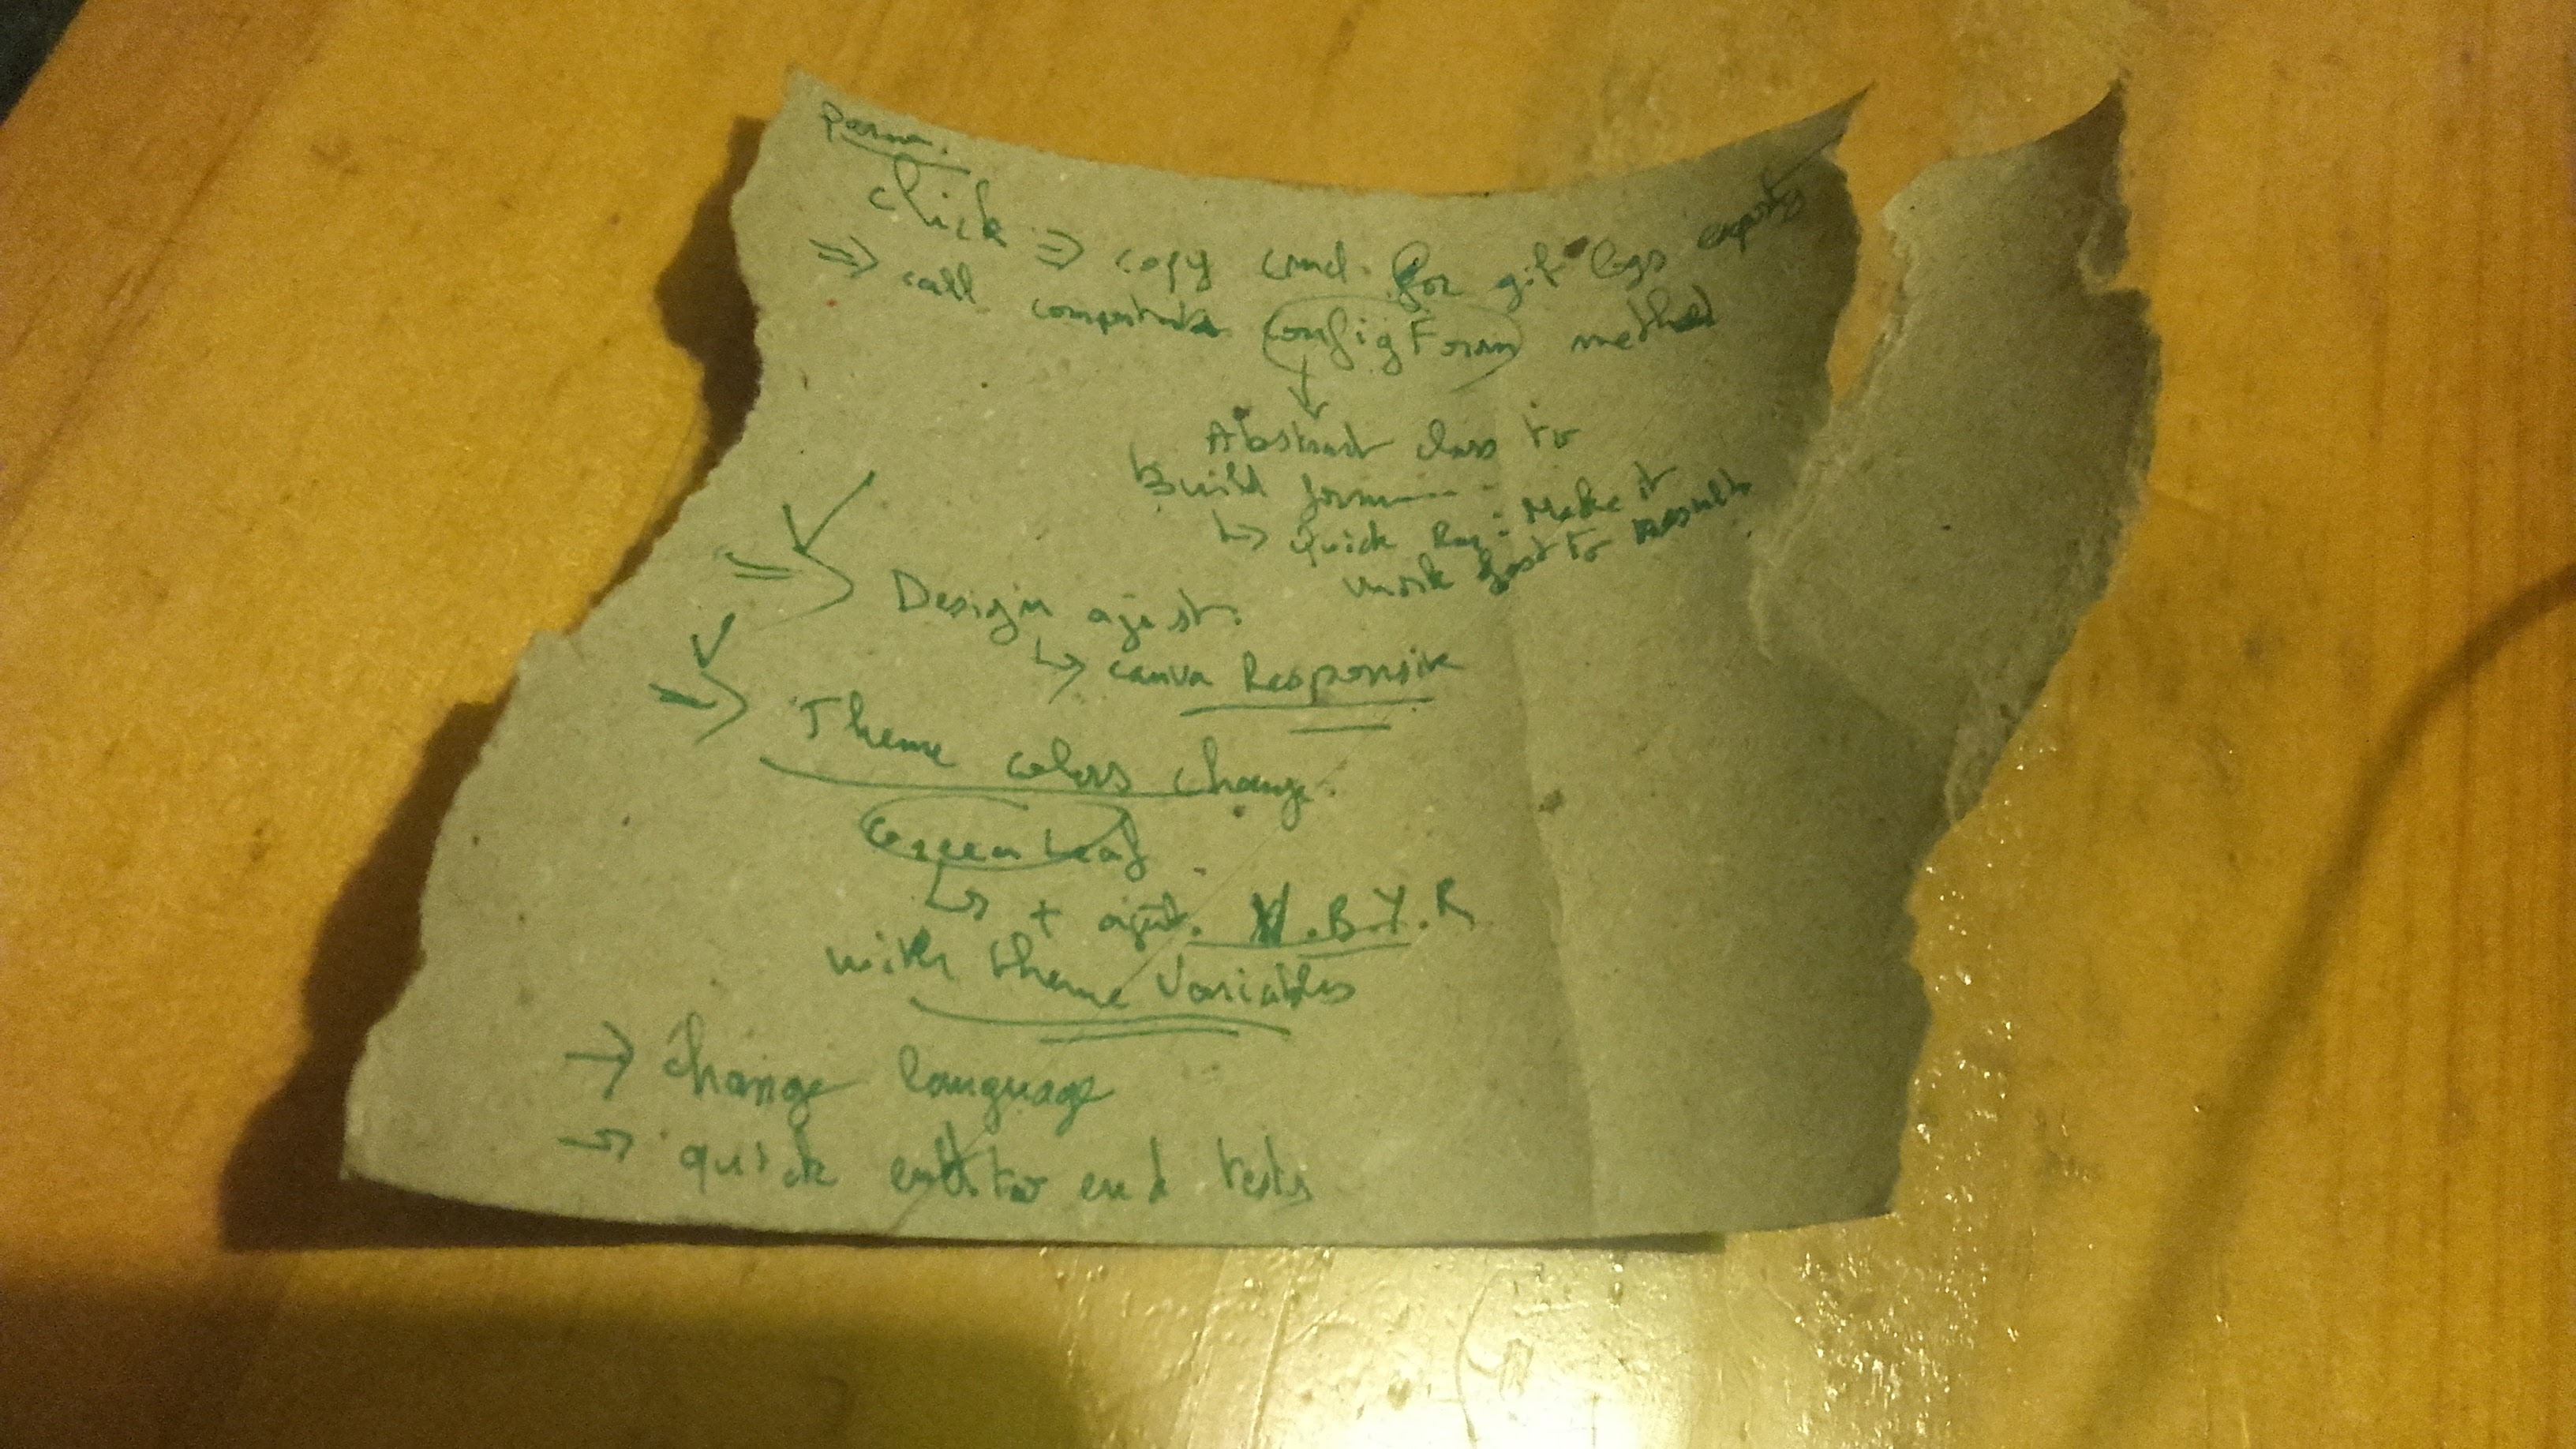 click ⇒ copy cmd. for git logs exports
⇒ call configForm method
↓
Abstract class to
Build form----
↳ Quick Rq: Make it
work fast to results
✓
⇒ Design ajust.
↳ canva Responsive
✓
⇒ Theme colors change
Green Leaf
↳ + ajust. W.B.Y.R
with theme Variables
→ change language
→ quick end to end tests